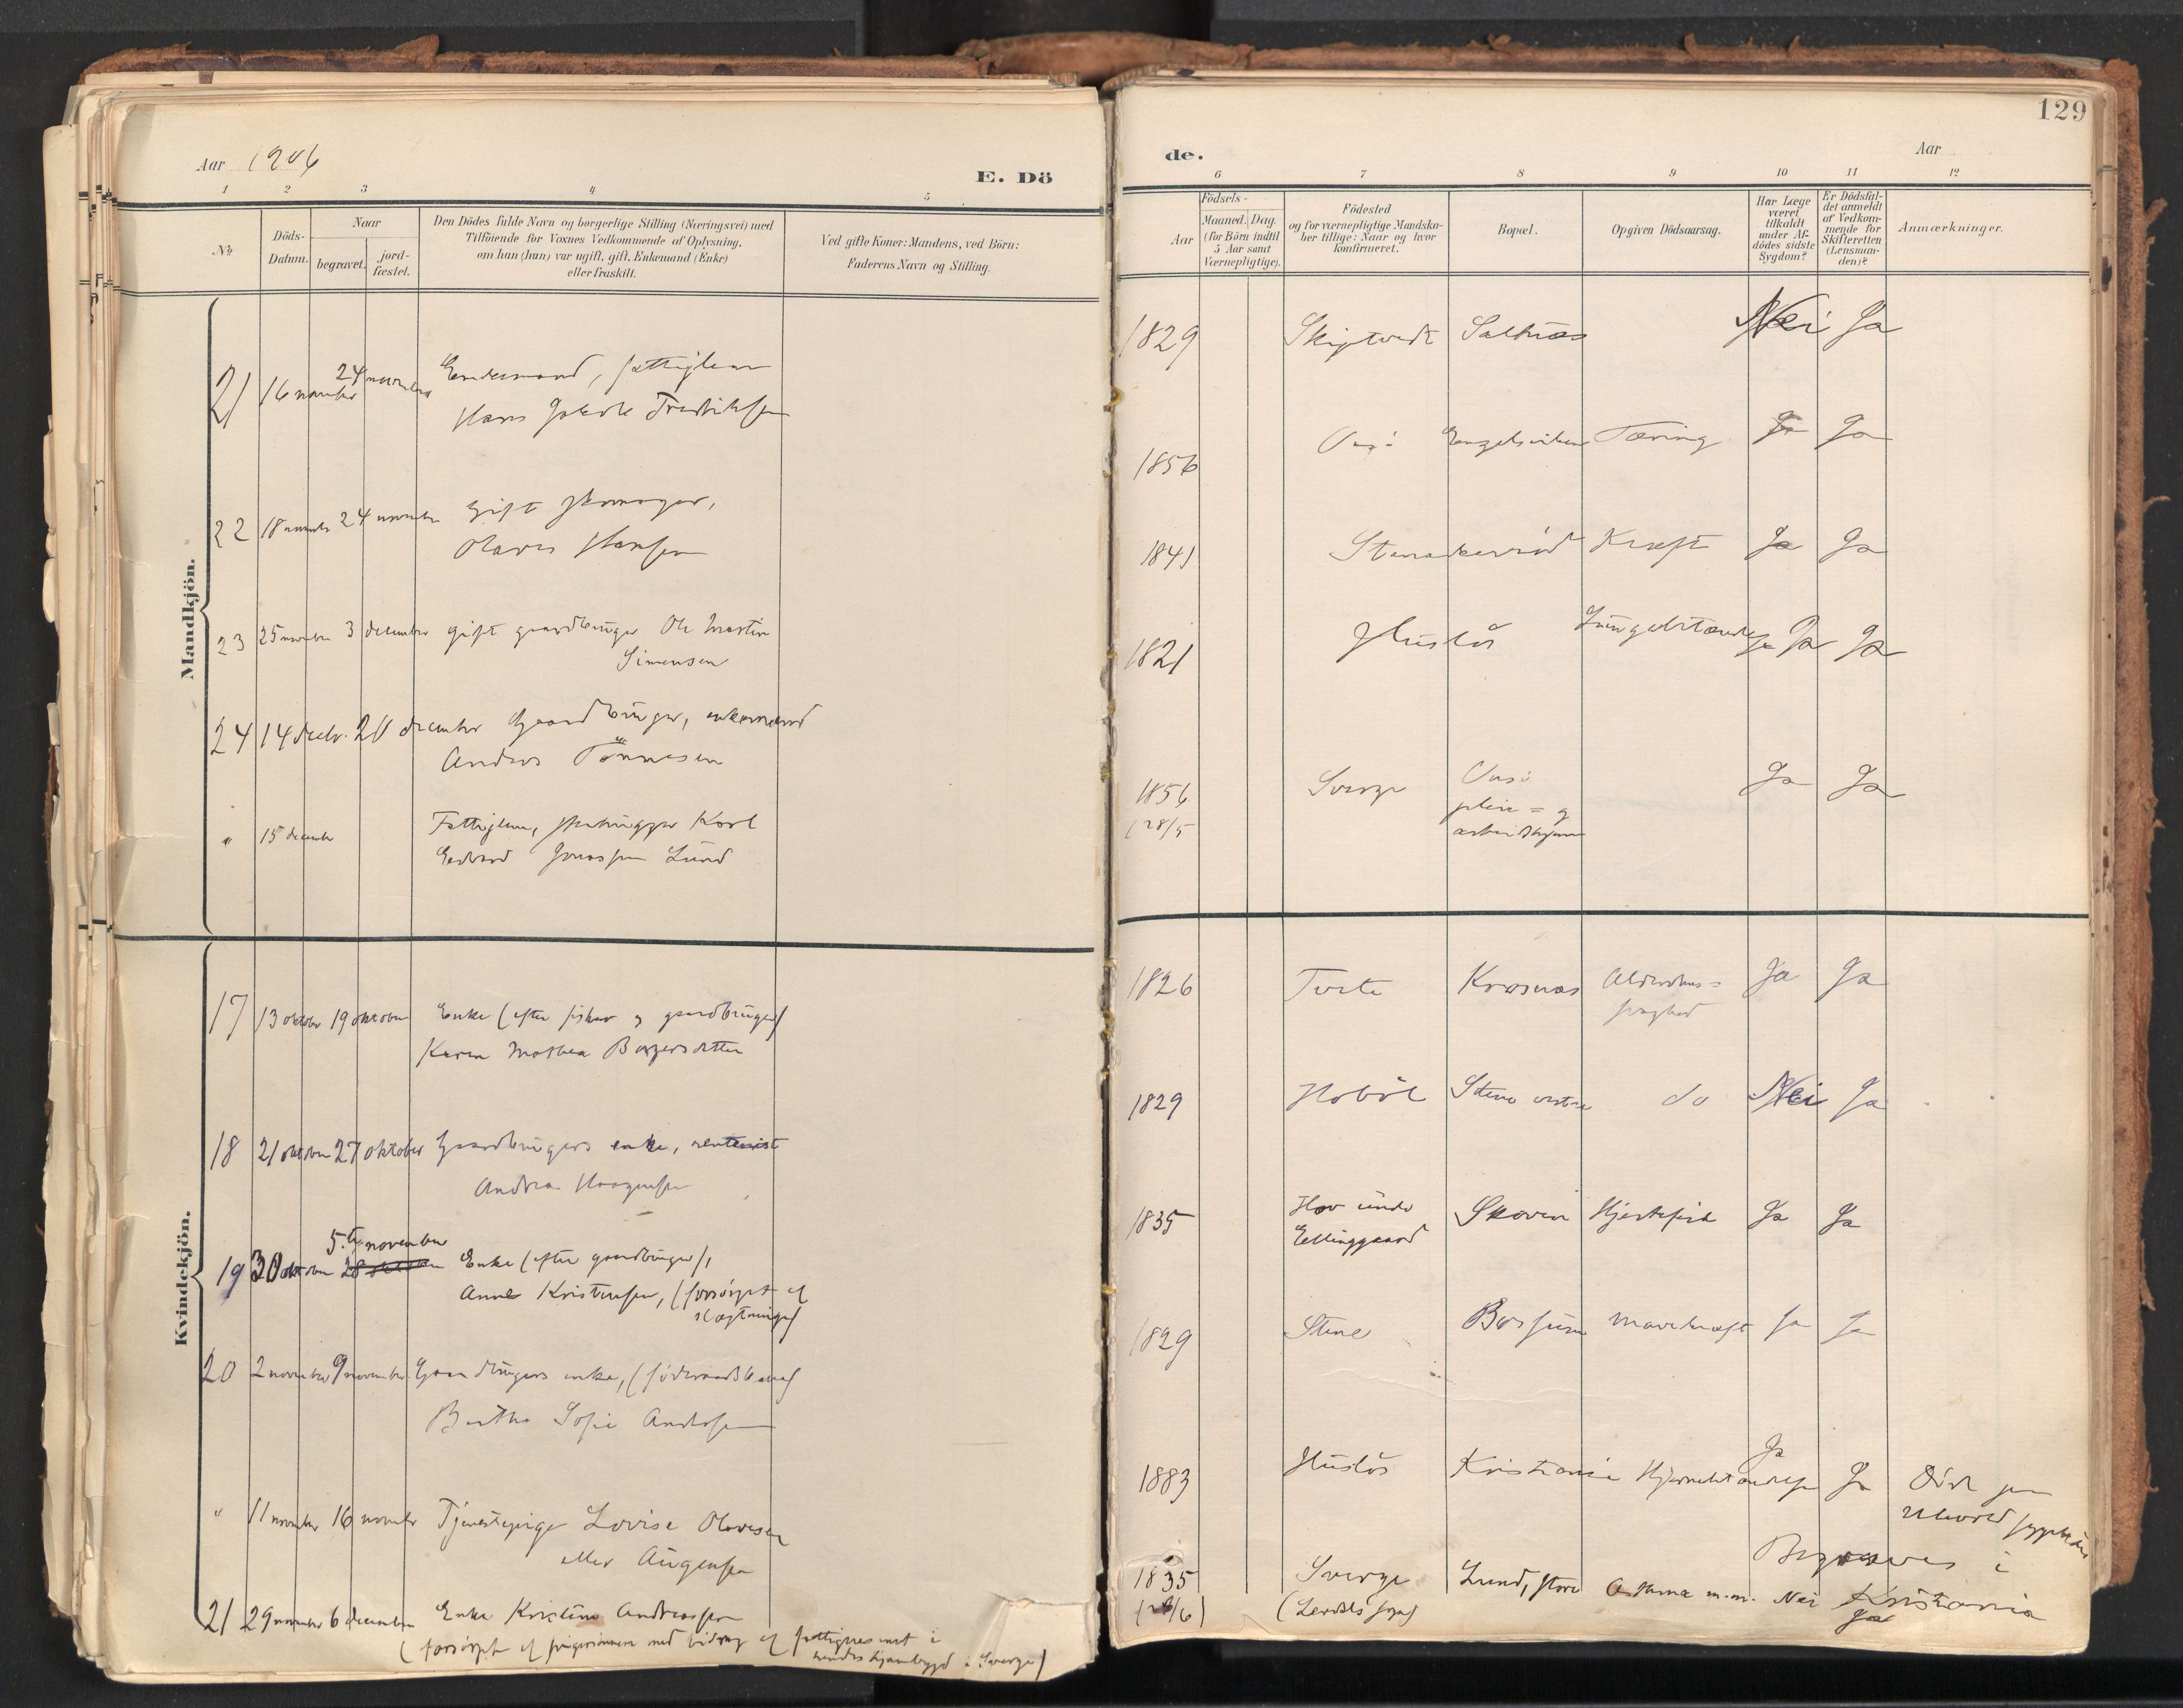 Aar 1906
E. Dö
1 2 3 4 5
No
Döds-
Datum.
Naar
begravet.
jord-
fæstet.
Den Dödes fulde Navn og borgerlige Stilling (Næringsvei) med
Tilföiende for Voxnes Vedkommende af Oplysning,
om han (hun) var ugift, gift, Enkemand (Enke)
eller fraskilt.
Ved gifte Koner: Mandens, ved Börn:
Faderens Navn og Stilling.
Mandkjön.
21 16 november 24 november Enkemand, fattiglem
Hans Jakob Fredriksen
22 18 november 24 november Gift skomager,
Olaves Hansen
23 25 november 3 december gift gaardbruger Ole Martin
Simensen
24 14 decbr. 20 december Gaardbruger, enkemand
Andreas Tönnesen
" 15 december Fattiglem, Karl
Edvard Jonassen Lund
Kvindekjön.
17 13 oktober 19 oktober Enke (efter fisker og gaardbruger)
Karen Mathea Borgersdatter
18 21 oktober 27 oktober Gaardbrugers enke, rentenist
Andrea Haagensen
5. november
19 30 oktober 28 oktober Enke (efter gaardbruger),
Anne Kristensen, (forsörget af
slægtninge)
20 2 november 9 november Gaardbrugers enke, (föderaadskone)
Berthe Sofie Andersen
" 11 november 16 november Tjenestepige Lovise Olavesen
eller Augensen
21 29 november 6 december Enke Kristine Andreassen
(forsörget af svigersönnen med bidrag af fattigvesenet i
hendes hjembygd i Sverge)
129
de.
Aar
6 7 8 9 10 11 12
Aar
Födsels-
Maaned. Dag.
(for Börn indtil
5 Aar samt
Værnepligtige).
Födested
og for værnepligtige Mandska-
ber tillige: Naar og hvor
konfirmeret.
Bopæl.
Opgiven Dödsaarsag.
Har Læge
været
tilkaldt
under Af-
dödes sidste
Sygdom?
Er Dödsfal-
det anmeldt
af Vedkom-
mende for
Skifteretten
(Lensman-
den)?
Anmærkninger.
1829 Skiptvedt Saltnæs Nei Ja
1856 Onsö Engelsviken Tæring Ja Ja
1841 Stenakerröd Kræft Ja Ja
1821 Huslös Ja Ja
1856 Sverge Onsö Ja Ja
(28/5 pleie= og
arbeidshjem
1826 Tofte Krosnæs Alderdoms= Ja Ja
svaghed
1829 Hobøl Stene vestre do Nei Ja
1835 Hov under Skoven Hjertefeil Ja Ja
Ellinggaard
1829 Stene Mavekræft Ja Ja
1883 Huslös Kristiania Ja Ja Död paa
Ullevold sygehus
Begraves i
Kristiania
1835 Sverge Lund, store Astma m.m. Nei Ja